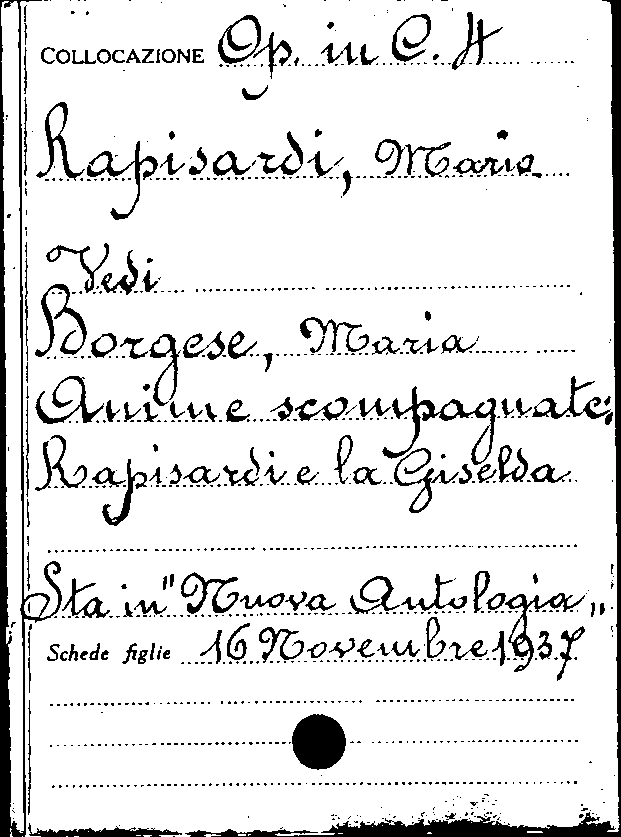 COLLOCAZIONE Op. in C. 4
Rapisardi, Mario
Vedi
Borgese, Maria
Anime scompagnate:
Rapisardi e la Giselda
Sta in "Nuova Antologia„
Schede figlie 16 Novembre 1937